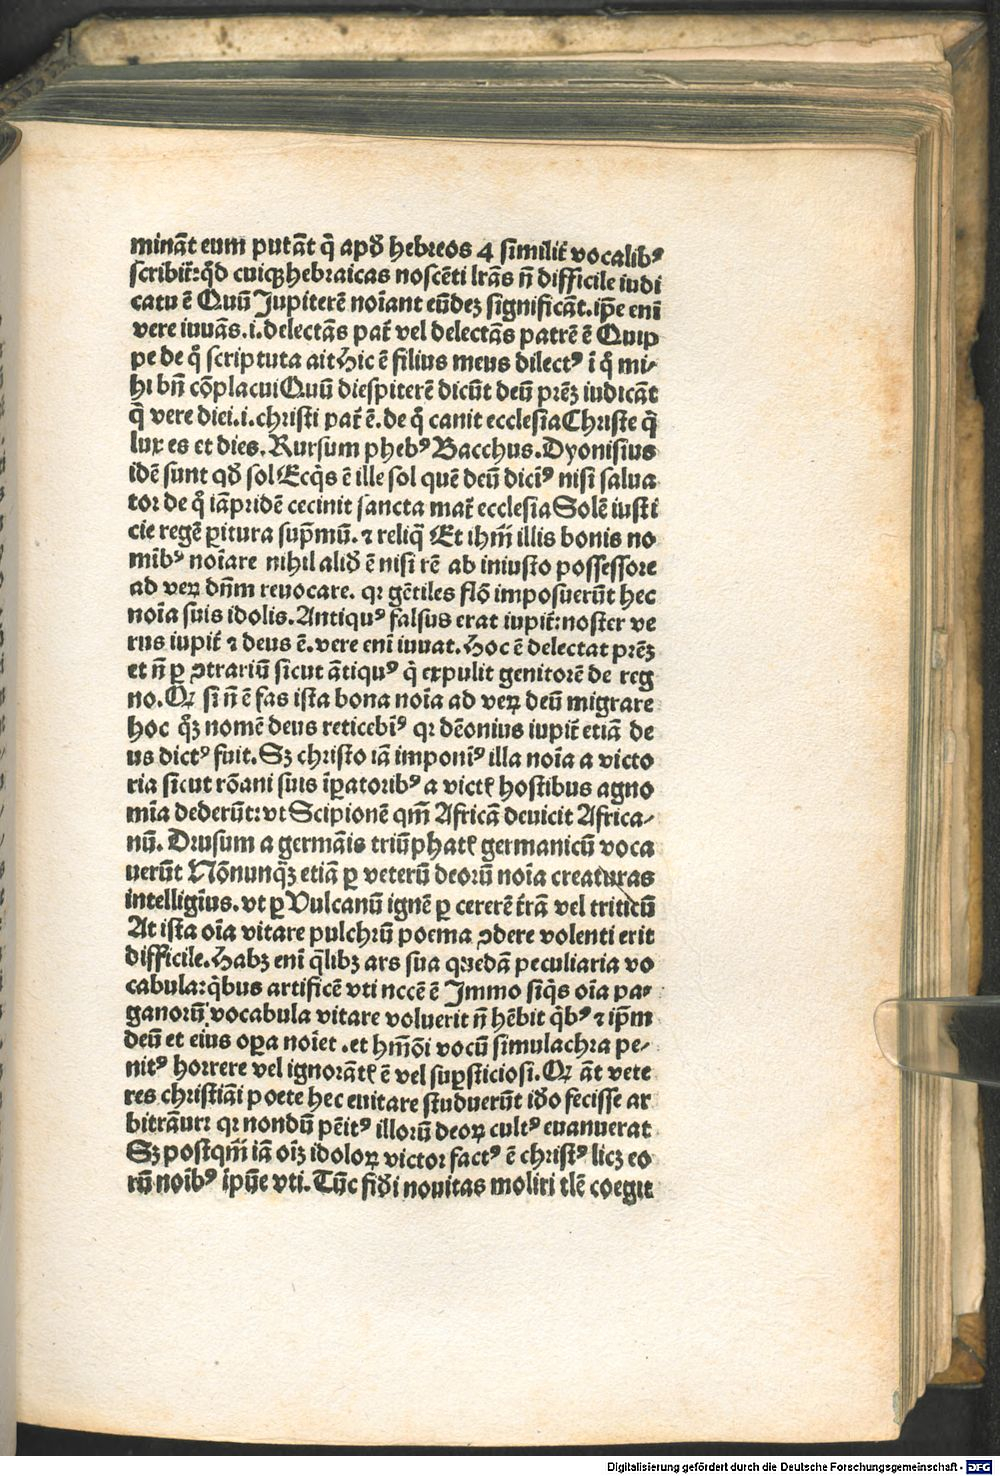 minãt eum putãt q̃ apď hebreos 4 similit̃ vocalibꝰ
scribit̃: qď cuiqꝫ hebraicas noscẽti lr̃as ñ difficile iudi
catu ẽ Quũ Jupiterẽ noĩant eũdeꝫ significãt. ip̃e enĩ
vere iuuãs .i. delectãs pat̃ vel delectãs patrẽ ẽ Quip
pe de q̊ scriptuta ait Hic ẽ filius meus dilectꝰ ĩ q̊ mi⸗
hi bñ cõplacui Quũ diespiterẽ dicũt deũ prẽꝫ iudicãt
q̊ vere diei .i. christi pat̃ ẽ. de q̊ canit ecclesia Christe q̃
lux es et dies. Rursum phebꝰ Bacchus. Dyonisius
idẽ sunt qď sol Ecq̃s ẽ ille sol quẽ deũ dicĩꝰ nisi salua
tor de q̊ iãpridẽ cecinit sancta mat̃ ecclesia Solẽ iusti
cie regẽ ꝑitura sup̃mũ. ⁊ reliq̃ Et ihm̃ illis bonis no
mĩbꝰ noĩare nihil aliď ẽ nisi rẽ ab iniusto possessore
ad veꝝ dñm reuocare. qꝛ gẽtiles flõ imposuerũt hec
noĩa suis idolis. Antiquꝰ falsus erat iupit̃: noster ve
rus iupit̃ ⁊ deus ẽ. vere enĩ iuuat. Hoc ẽ delectat prẽꝫ
et ñ ꝑ ꝯtrariũ sicut ãtiquꝰ q̃ expulit genitorẽ de reg
no. Qꝛ si ñ ẽ fas ista bona noĩa ad veꝝ deũ migrare
hoc q̃ꝫ nomẽ deus reticebĩꝰ qꝛ dẽonius iupit̃ etiã de
us dictꝰ fuit. Sꝫ christo iã imponĩꝰ illa noĩa a victo
ria sicut rõani suis ĩꝑatoribꝰ a victꝭ hostibus agno
mĩa dederũt: vt Scipionẽ qm̃ Africã deuicit Africa⸗
nũ. Drusum a germãis triũphatꝭ germanicũ voca
uerũt Nõnunq̃ꝫ etiã ꝑ veterũ deorũ noĩa creaturas
intelligĩus. vt ꝑ Vulcanũ ignẽ ꝑ cererẽ tr̃ã vel triticũ
At ista oĩa vitare pulchrũ poema ꝯdere volenti erit
difficile. Habꝫ enĩ q̃libꝫ ars sua quedã peculiaria vo
cabula: q̃bus artificẽ vti nccẽ ẽ Immo siq̃s oĩa pa⸗
ganorũ vocabula vitare voluerit ñ hẽbit q̃bꝰ ⁊ ip̃m
deũ et eius oꝑa noĩet . et hm̃õi vocũ simulachra pe⸗
nitꝰ horrere vel ignorãtꝭ ẽ vel suꝑsticiosi. Qꝛ ãt vete
res christiãi poete hec euitare studuerũt iďo fecisse ar
bitrãur: qꝛ nondũ pẽitꝰ illorũ deoꝝ cultꝰ euanuerat
Sꝫ postqm̃ iã oĩꝫ idoloꝝ victor factꝰ ẽ christꝰ licꝫ eo
rũ noĩbꝰ ĩpũe vti. Tũc fiďi nouitas moliri tlẽ coegit
Digitalisierung gefördert durch die Deutsche Forschungsgemeinschaft - DFG